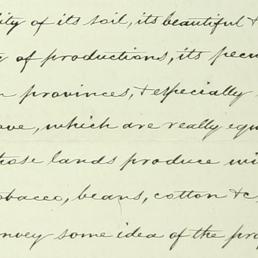 ity of its soil, its beautiful &
of productions, its pecu
n provinces, & especially
ove, which are really equ
those lands produce wi
obacco, beans, cotton &c
nvey some idea of the pro